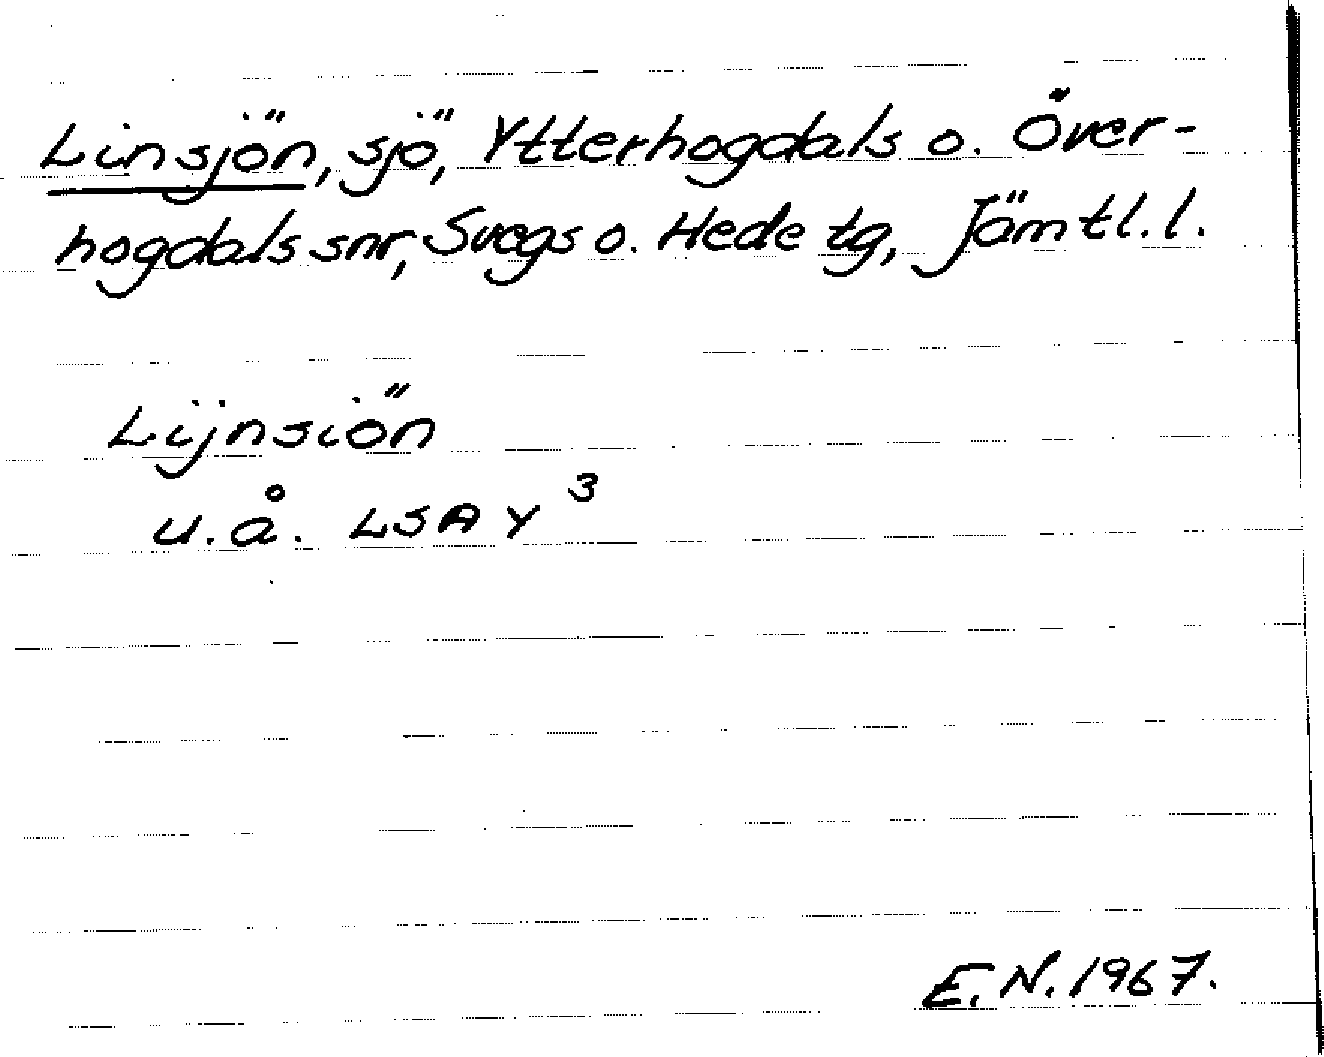 Linsjön, sjö, Ytterhogdals o. Över-
hogdals snr, Svegs o. Hede tg, Jämtl. l.
Lijnsiön
u.å. LSA Y³
E.N. 1967.